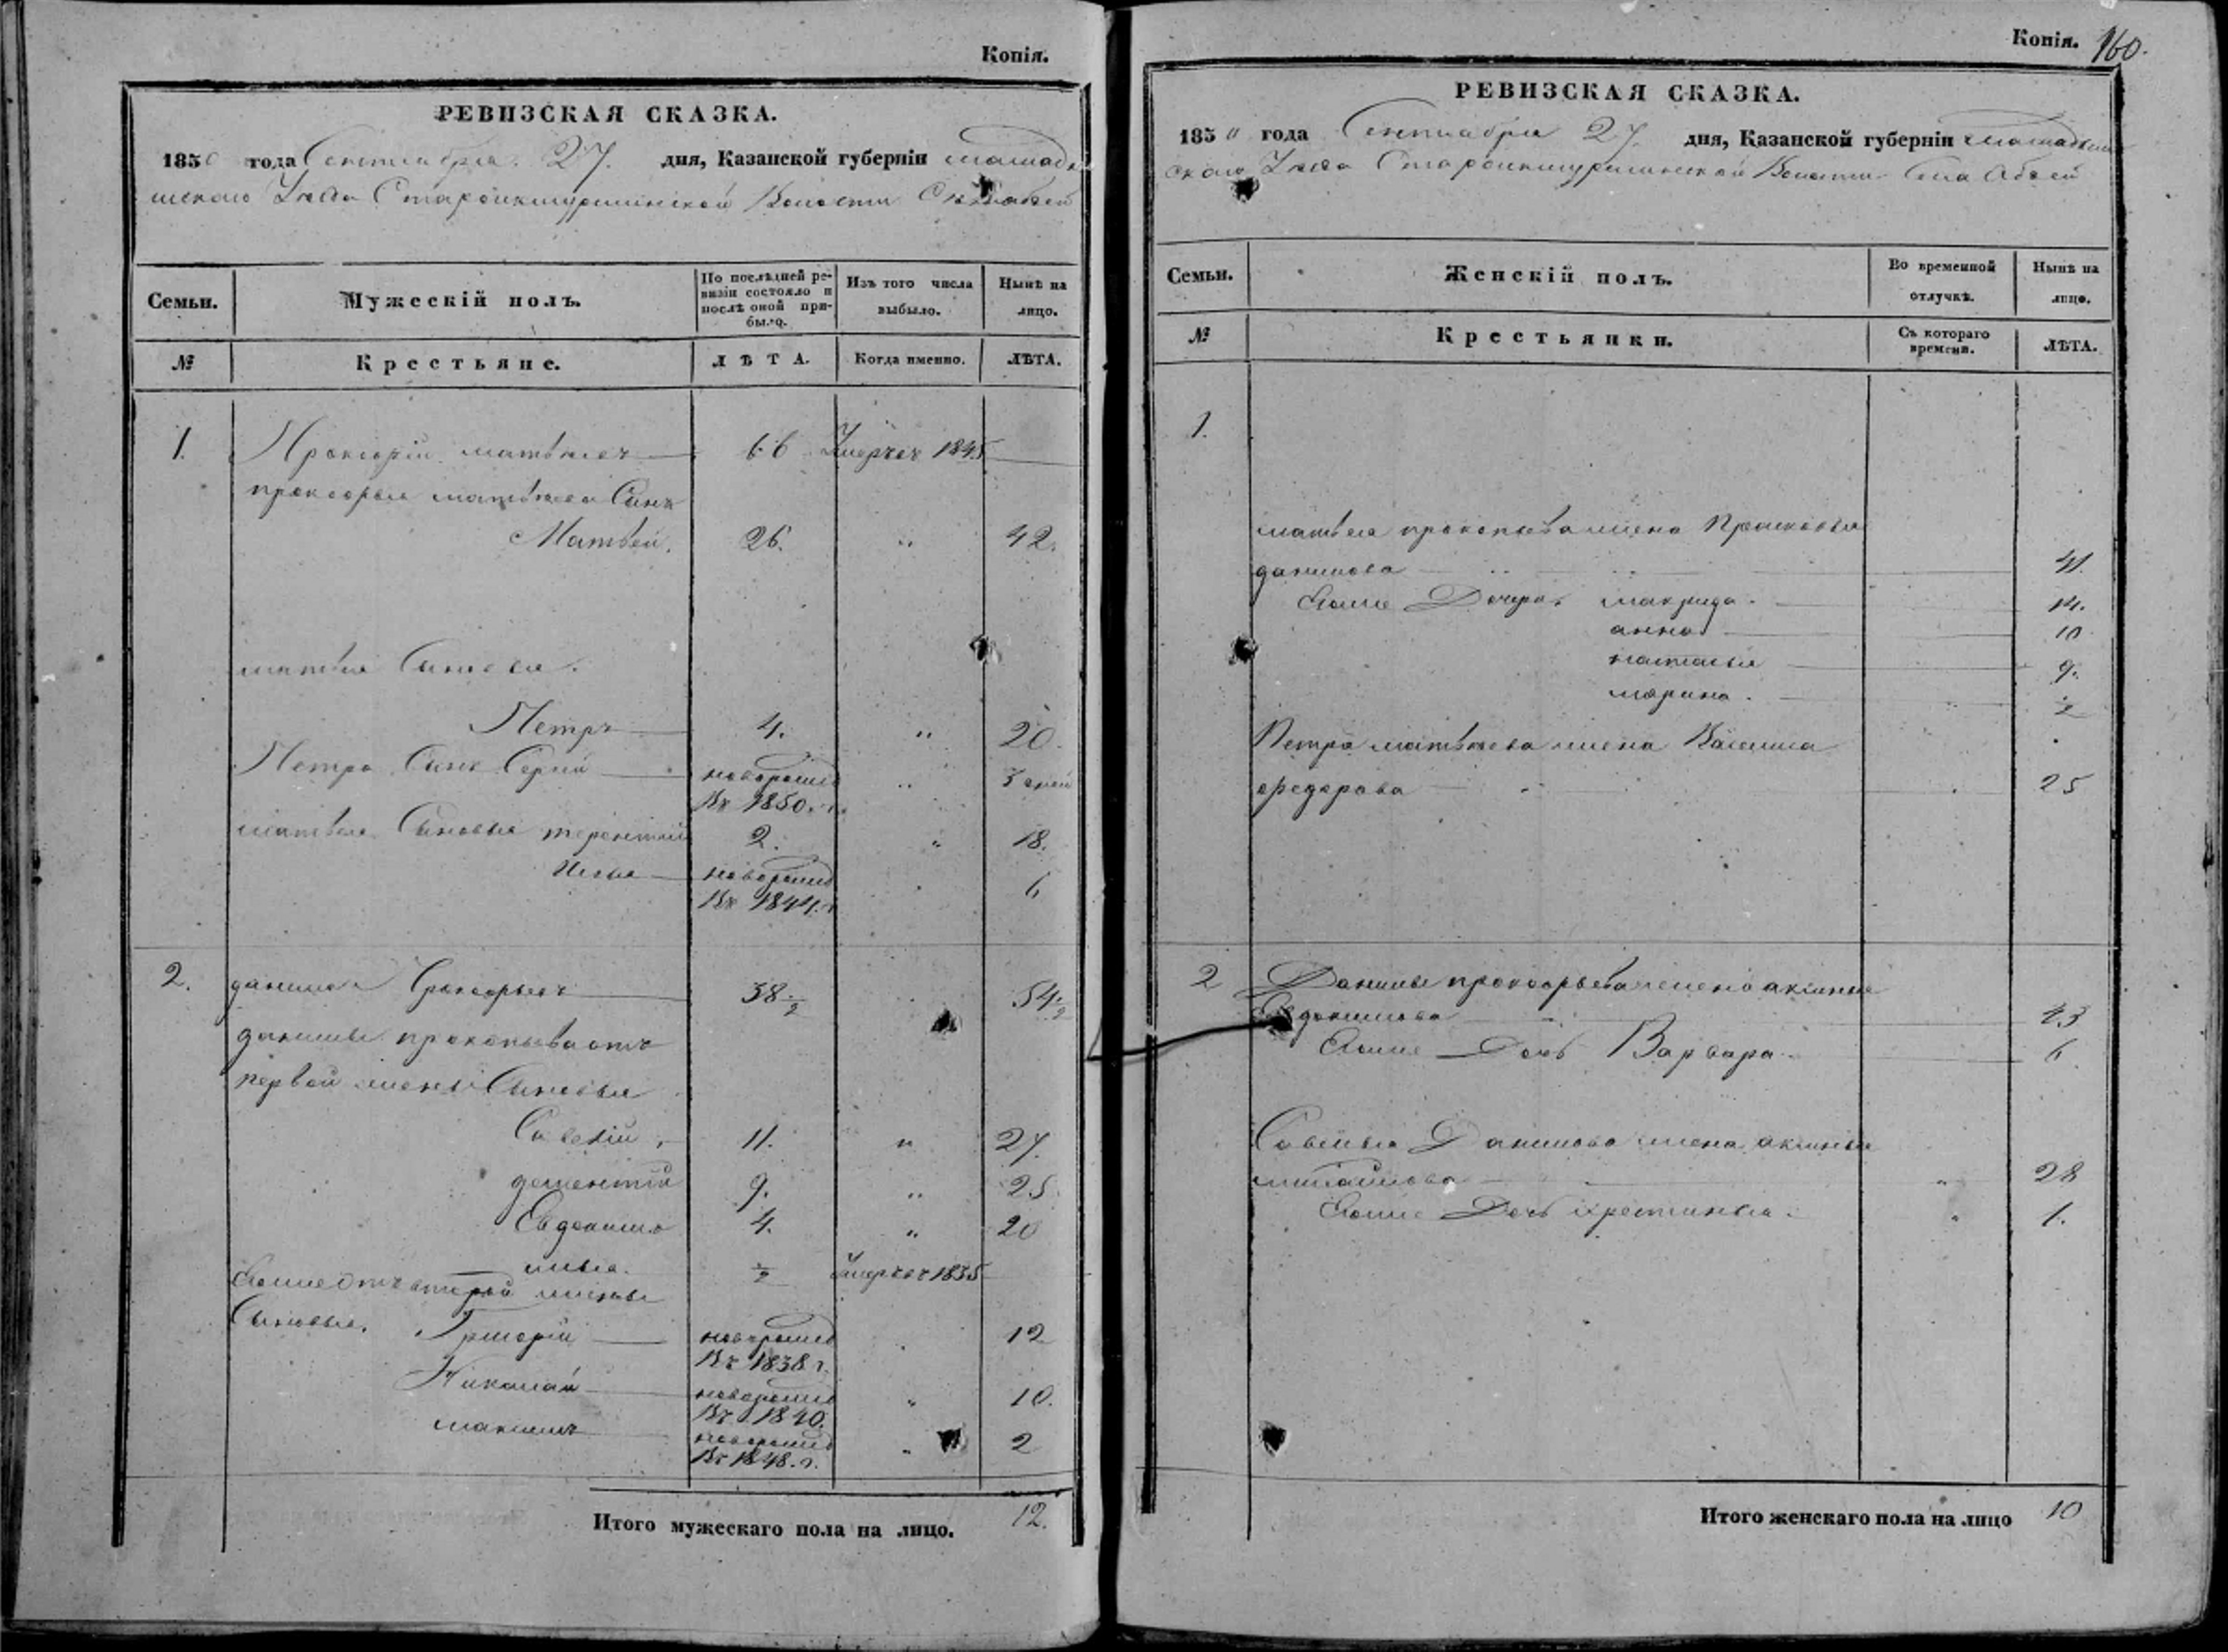 Копія.
РЕВИЗСКАЯ СКАЗКА.
1850 года Сентября 27. дня, Казанской губерніи мамады
шскаго Уѣзда Волости
Семьи.
Мужескій полъ.
По послѣдней ре-
визіи состояло и
послѣ оной при-
было.
Изъ того числа
выбыло.
Нынѣ на
лицо.
№
Крестьяне.
ЛѢТА.
Когда именно.
ЛѢТА.
1. матвѣевъ 66 Умеръ въ 1845
матвѣева Сынъ
Матвѣй. 26. " 42.
матвѣя Сыновья.
Петръ 4. " 20.
Петра Сынъ Сергѣй новорожд " 3 дней
Въ 1850. г.
матвѣя Сыновья терентий 2. " 18.
Илья новорожд 6
Въ 1844. г
2. данила 38 1/2 54 1/2
данилы прокопьева отъ
первой жены Сыновья
Савелій 11. " 27.
дементій 9. " 25.
Евдокимъ 4. " 20
илья. 1/2 Умеръ въ 1835
Егоже отъ второй жены
Сыновья. Григорій новорожд 12
Въ 1838 г.
Николай новорожд " 10.
Въ 1840.
максимъ новорожд " 2
Въ 1848. г.
Итого мужескаго пола на лицо. 12.
Копія. 160.
РЕВИЗСКАЯ СКАЗКА.
1850 года Сентября 27. дня, Казанской губерніи мамадыш
скаго Уѣзда Волости Села
Семьи.
Женскій полъ.
Во временной
отлучкѣ.
Нынѣ на
лицо.
№
Крестьянки.
Съ котораго
времени.
ЛѢТА.
1.
матвѣя прокопьева жена Прасковья
данилова 41.
Егоже Дочери макрида. 14.
анна 10
наталья 9.
марина. 1/2
Петра матвѣева жена Василиса
федорова 25
2 Данилы жена аксинья
Евдокимова 43
Егоже Дочь Варвара. 6
Савелья Данилова жена аксинья
михайлова " 28
Егоже Дочь христинья. " 1.
Итого женскаго пола на лицо 10